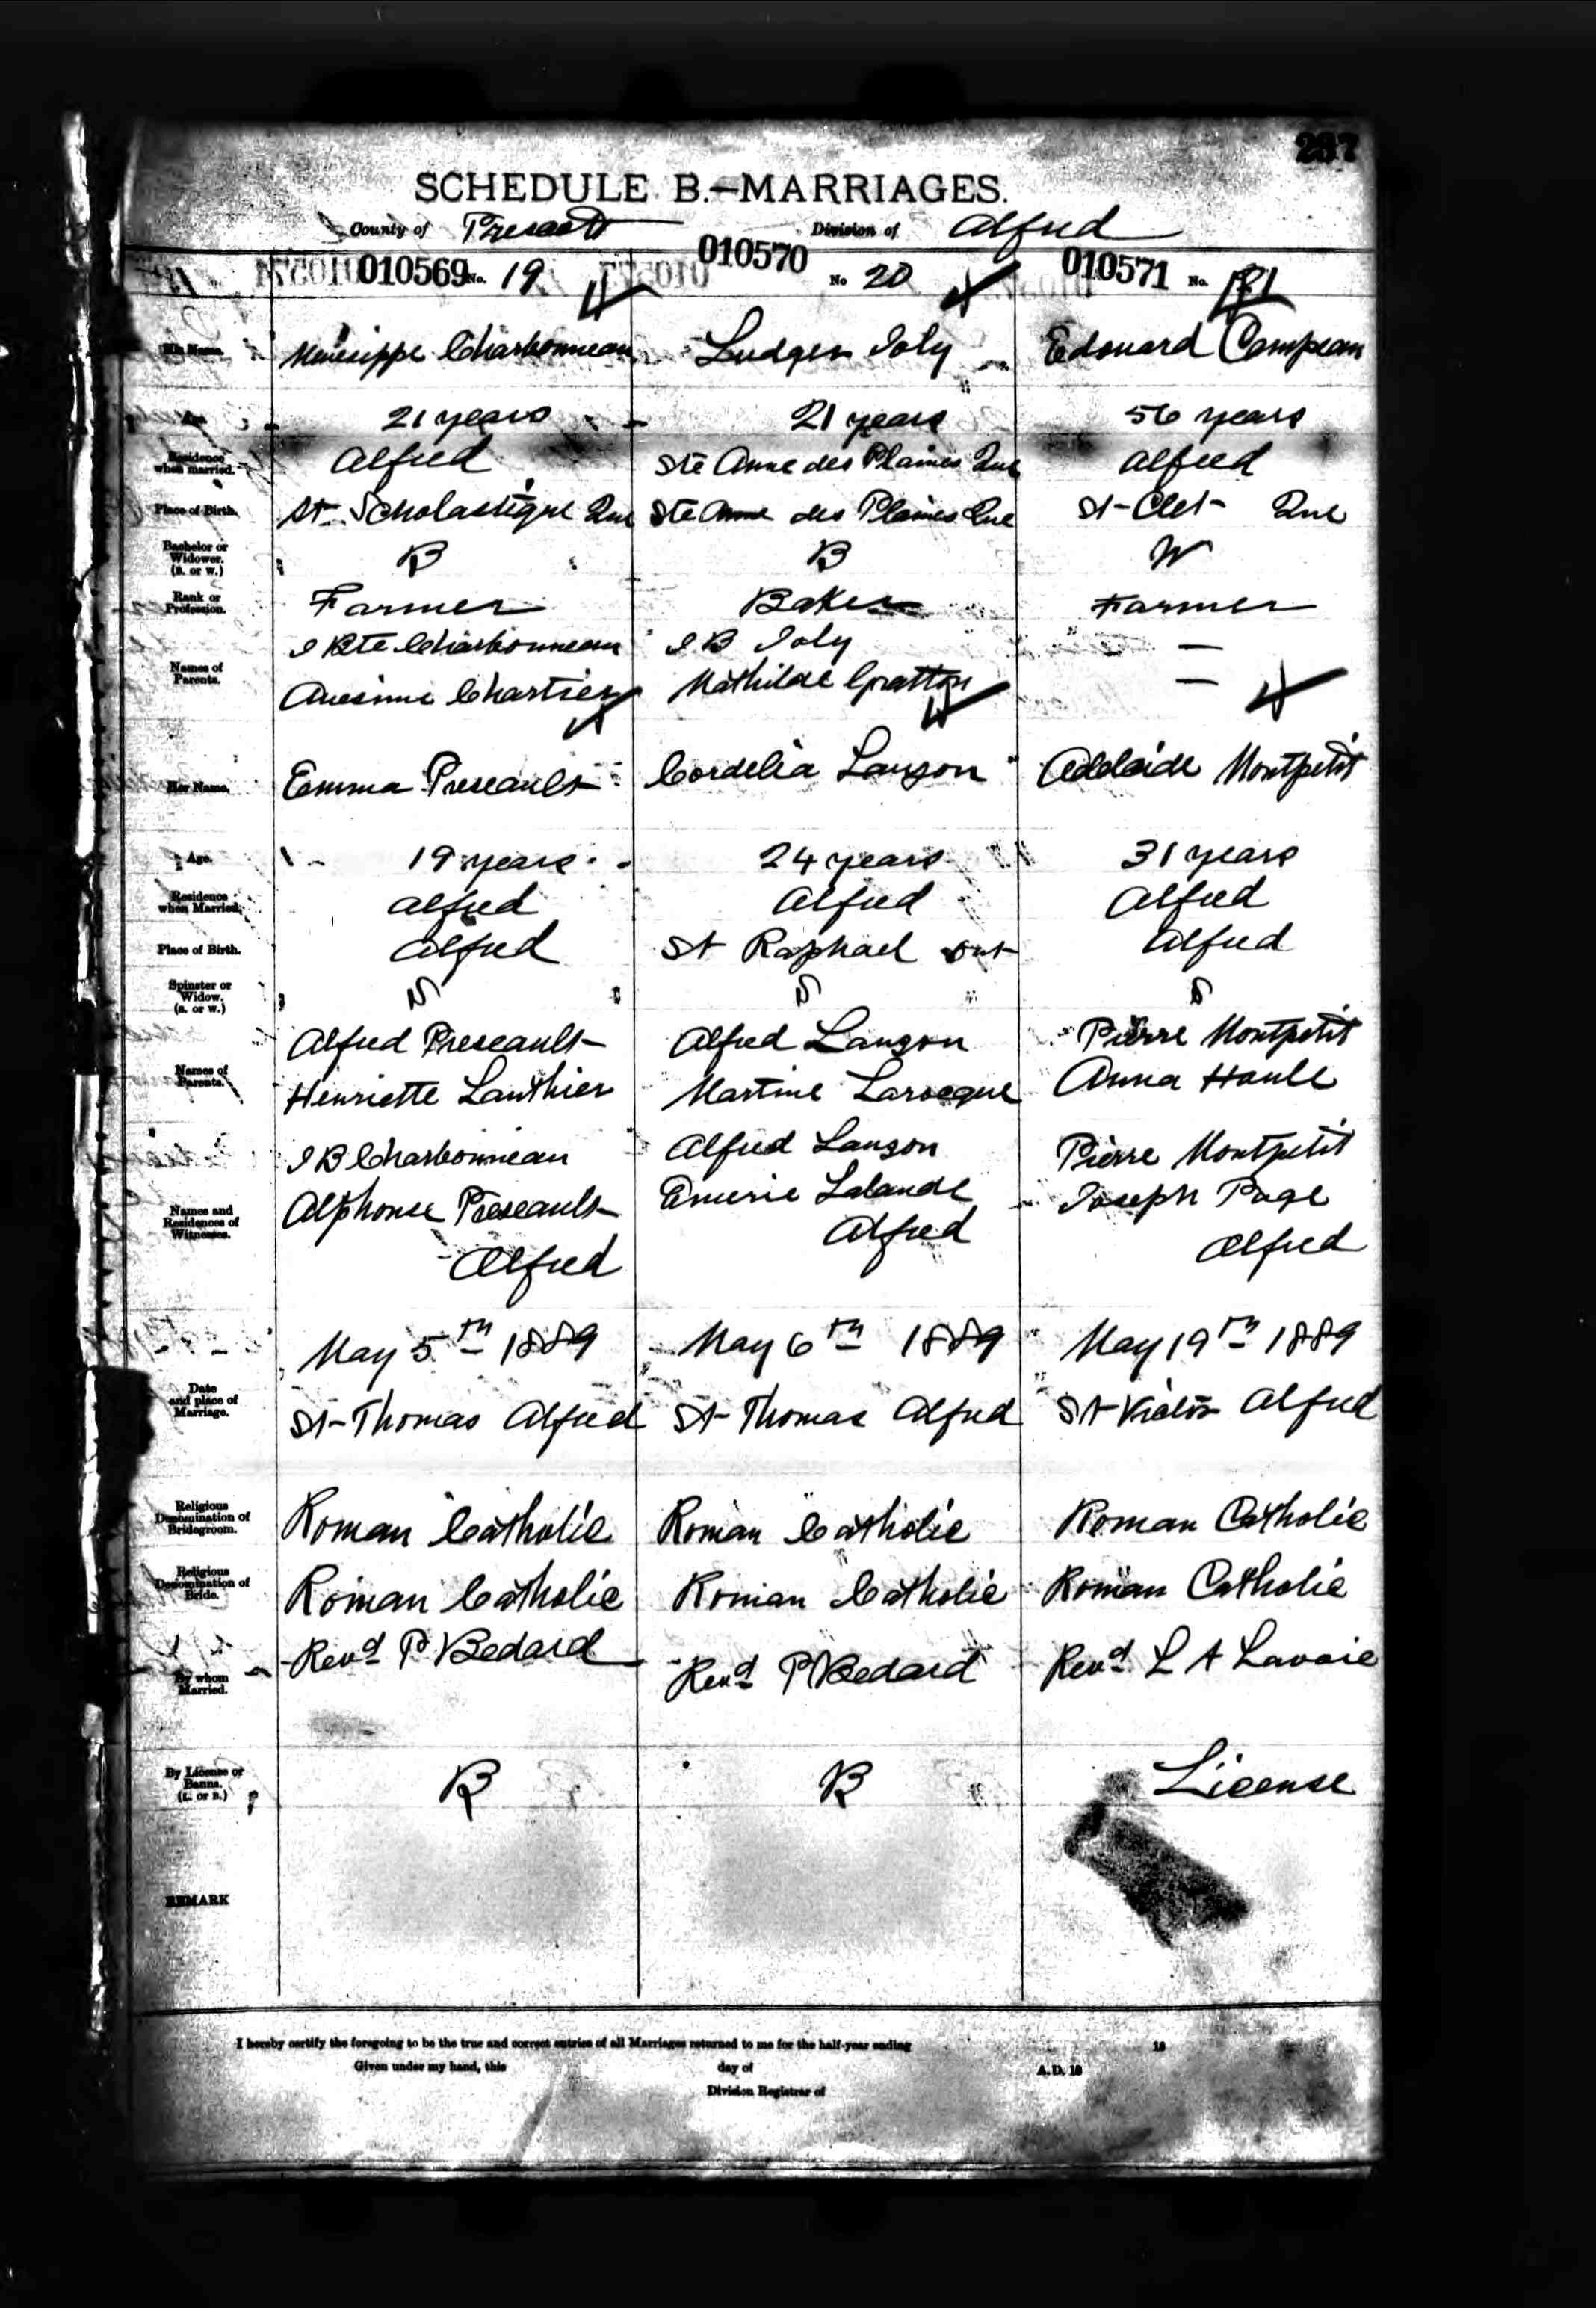 237
SCHEDULE B.—MARRIAGES.
County of Prescott Division of Alfred
010569 No. 19 010570 No 20 010571 No. 21
His Name. Charbonneau Ludger Joly Edouard Campeau
Age. 21 years 21 years 56 years
Residence when married. Alfred Ste Anne des Plaines Que Alfred
Place of Birth. St Scholastique Que Ste Anne des Plaines Que St-Clet Que
Bachelor or Widower. (B. or W.) B B W
Rank or Profession. Farmer Baker Farmer
Names of Parents. J Bte Charbonneau J B Joly —
Chartier Mathilde Gratton —
Her Name. Emma Preseault Cordelia Lauzon Adelaide Montpetit
Age. 19 years 24 years 31 years
Residence when Married. Alfred Alfred Alfred
Place of Birth. Alfred St Raphael Ont Alfred
Spinster or Widow. (S. or W.) S S S
Names of Parents. Alfred Preseault Alfred Lauzon Pierre Montpetit
Henriette Lauthier Martine Larocque Anna Houle
Names and Residences of Witnesses. J B Charbonneau Alfred Lauzon Pierre Montpetit
Alphonse Preseault Emerie Lalande Joseph Page
Alfred Alfred Alfred
Date and place of Marriage. May 5th 1889 May 6th 1889 May 19th 1889
St-Thomas Alfred St-Thomas Alfred St Victor Alfred
Religious Denomination of Bridegroom. Roman Catholic Roman Catholic Roman Catholic
Religious Denomination of Bride. Roman Catholic Roman Catholic Roman Catholic
By whom Married. Revd P Bedard Revd P Bedard Revd L A Lavoie
By License or Banns. (L. or B.) B B License
REMARK
I hereby certify the foregoing to be the true and correct entries of all Marriages returned to me for the half-year ending 18
Given under my hand, this day of A.D. 18
Division Registrar of